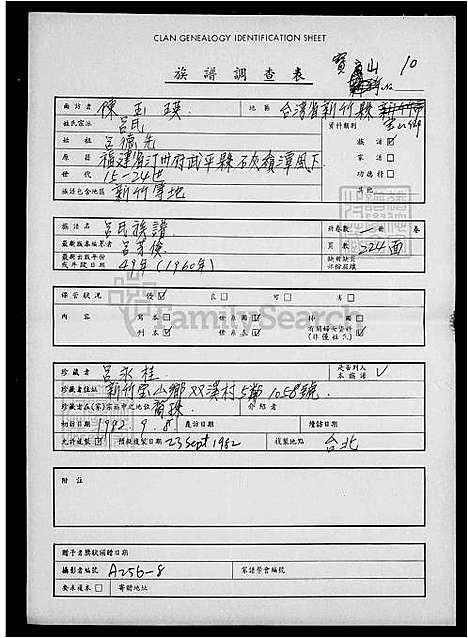 CLAN GENEALOGY IDENTIFICATION SHEET
族譜調查表
寶山 10
面訪者 陳玉瑛 地區 台灣省新竹縣 寶山鄉
姓氏宗派 呂氏 資料類別
始祖 呂德先 族譜 ☑
原籍 福建省汀州府武平縣石灰嶺潭風下 家譜 ☐
世代 15-24世 功德榜 ☐
族譜包含地區 新竹等地 其他
族譜名 呂氏族譜 冊卷數 一冊 卷
最新版本編纂者 呂芳俊 頁數 224面
最新出版年份或年散日期 49年(1960年) 缺頁缺點
保管狀況 優 ☑ 良 ☐ 可 ☐ 劣 ☐
內容 寫本 ☐ 世系圖 ☑ 林園 ☐
刊本 ☑ 世系表 ☑ 有關婦女資料
珍藏者 呂永桂 是否列入本族譜 ✓
珍藏者住址 新竹寶山鄉双溪村5鄰1058號
珍藏者在(家)宗而中之地位 裔孫 介紹者
初訪日期 1982.9.8 再訪日期 續訪日期
允許複製 ☑ 預擬複製日期 23 Sept 1982 複製地點 台北
附註
贈予者獎狀頒贈日期
攝影者編號 A256-8 家譜學會編號
要求複本 ☐ 寄贈地址
FamilySearch